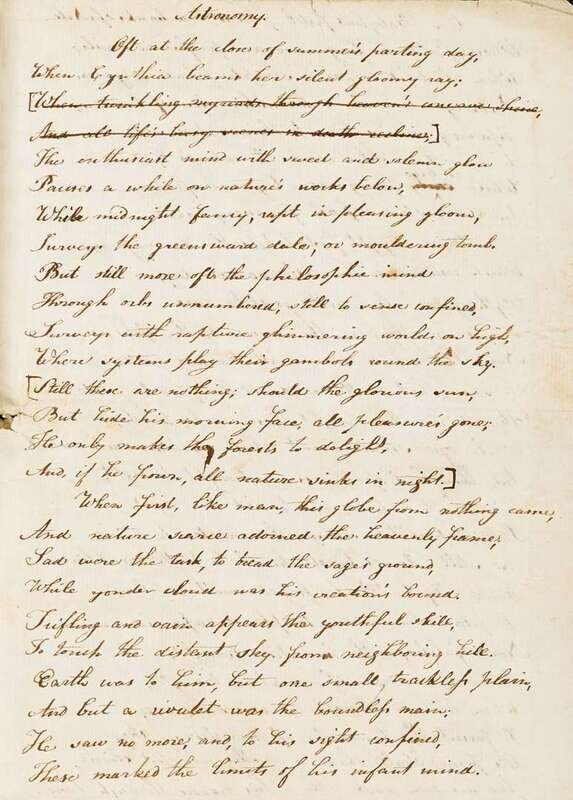 Astronomy.
Oft at the close of summer's parting day,
When Cynthia beams her silent gloomy ray;
[When twinkling myriads through heaven's concave shine,
And all life's busy scenes in death recline;]
The enthusiast mind with sweet and solemn glow
Pauses a while on nature's works below,
While midnight fancy, rapt in pleasing gloom,
Surveys the greensward dale, or mouldering tomb.
But still more oft the philosophic mind
Through orbs unnumbered, still to sense confined,
Surveys with rapture glimmering worlds on high,
Where systems play their gambols round the sky.
[Still these are nothing; should the glorious sun,
But hide his morning face, all pleasure's gone;
He only makes the forests to delight,
And, if he frown, all nature sinks in night.]
When first, like man, this globe from nothing came,
And nature scarce adorned the heavenly frame;
Sad were the task, to tread the sage's ground,
While yonder cloud was his creation's bound.
Trifling and vain appears the youthful skill,
To touch the distant sky from neighbouring hill.
Earth was to him, but one small, trackless plain,
And but a rivulet was the boundless main;
He saw no more, and, to his sight confined,
These marked the limits of his infant mind.